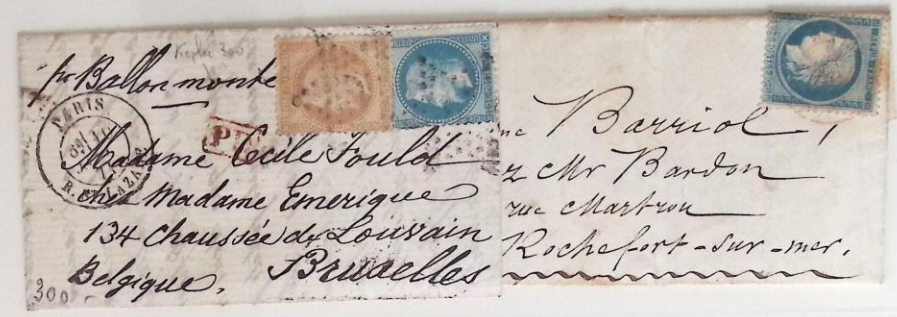 Kepler 300
pr Ballon monté
PARIS
R. ST LAZARE
PD
Madame Cécile Fould
chez Madame Emerique
134 Chaussée de Louvain
Bruxelles
Belgique,
300
Barriol,
z Mr Bardon
rue Martrou
Rochefort-sur-mer.